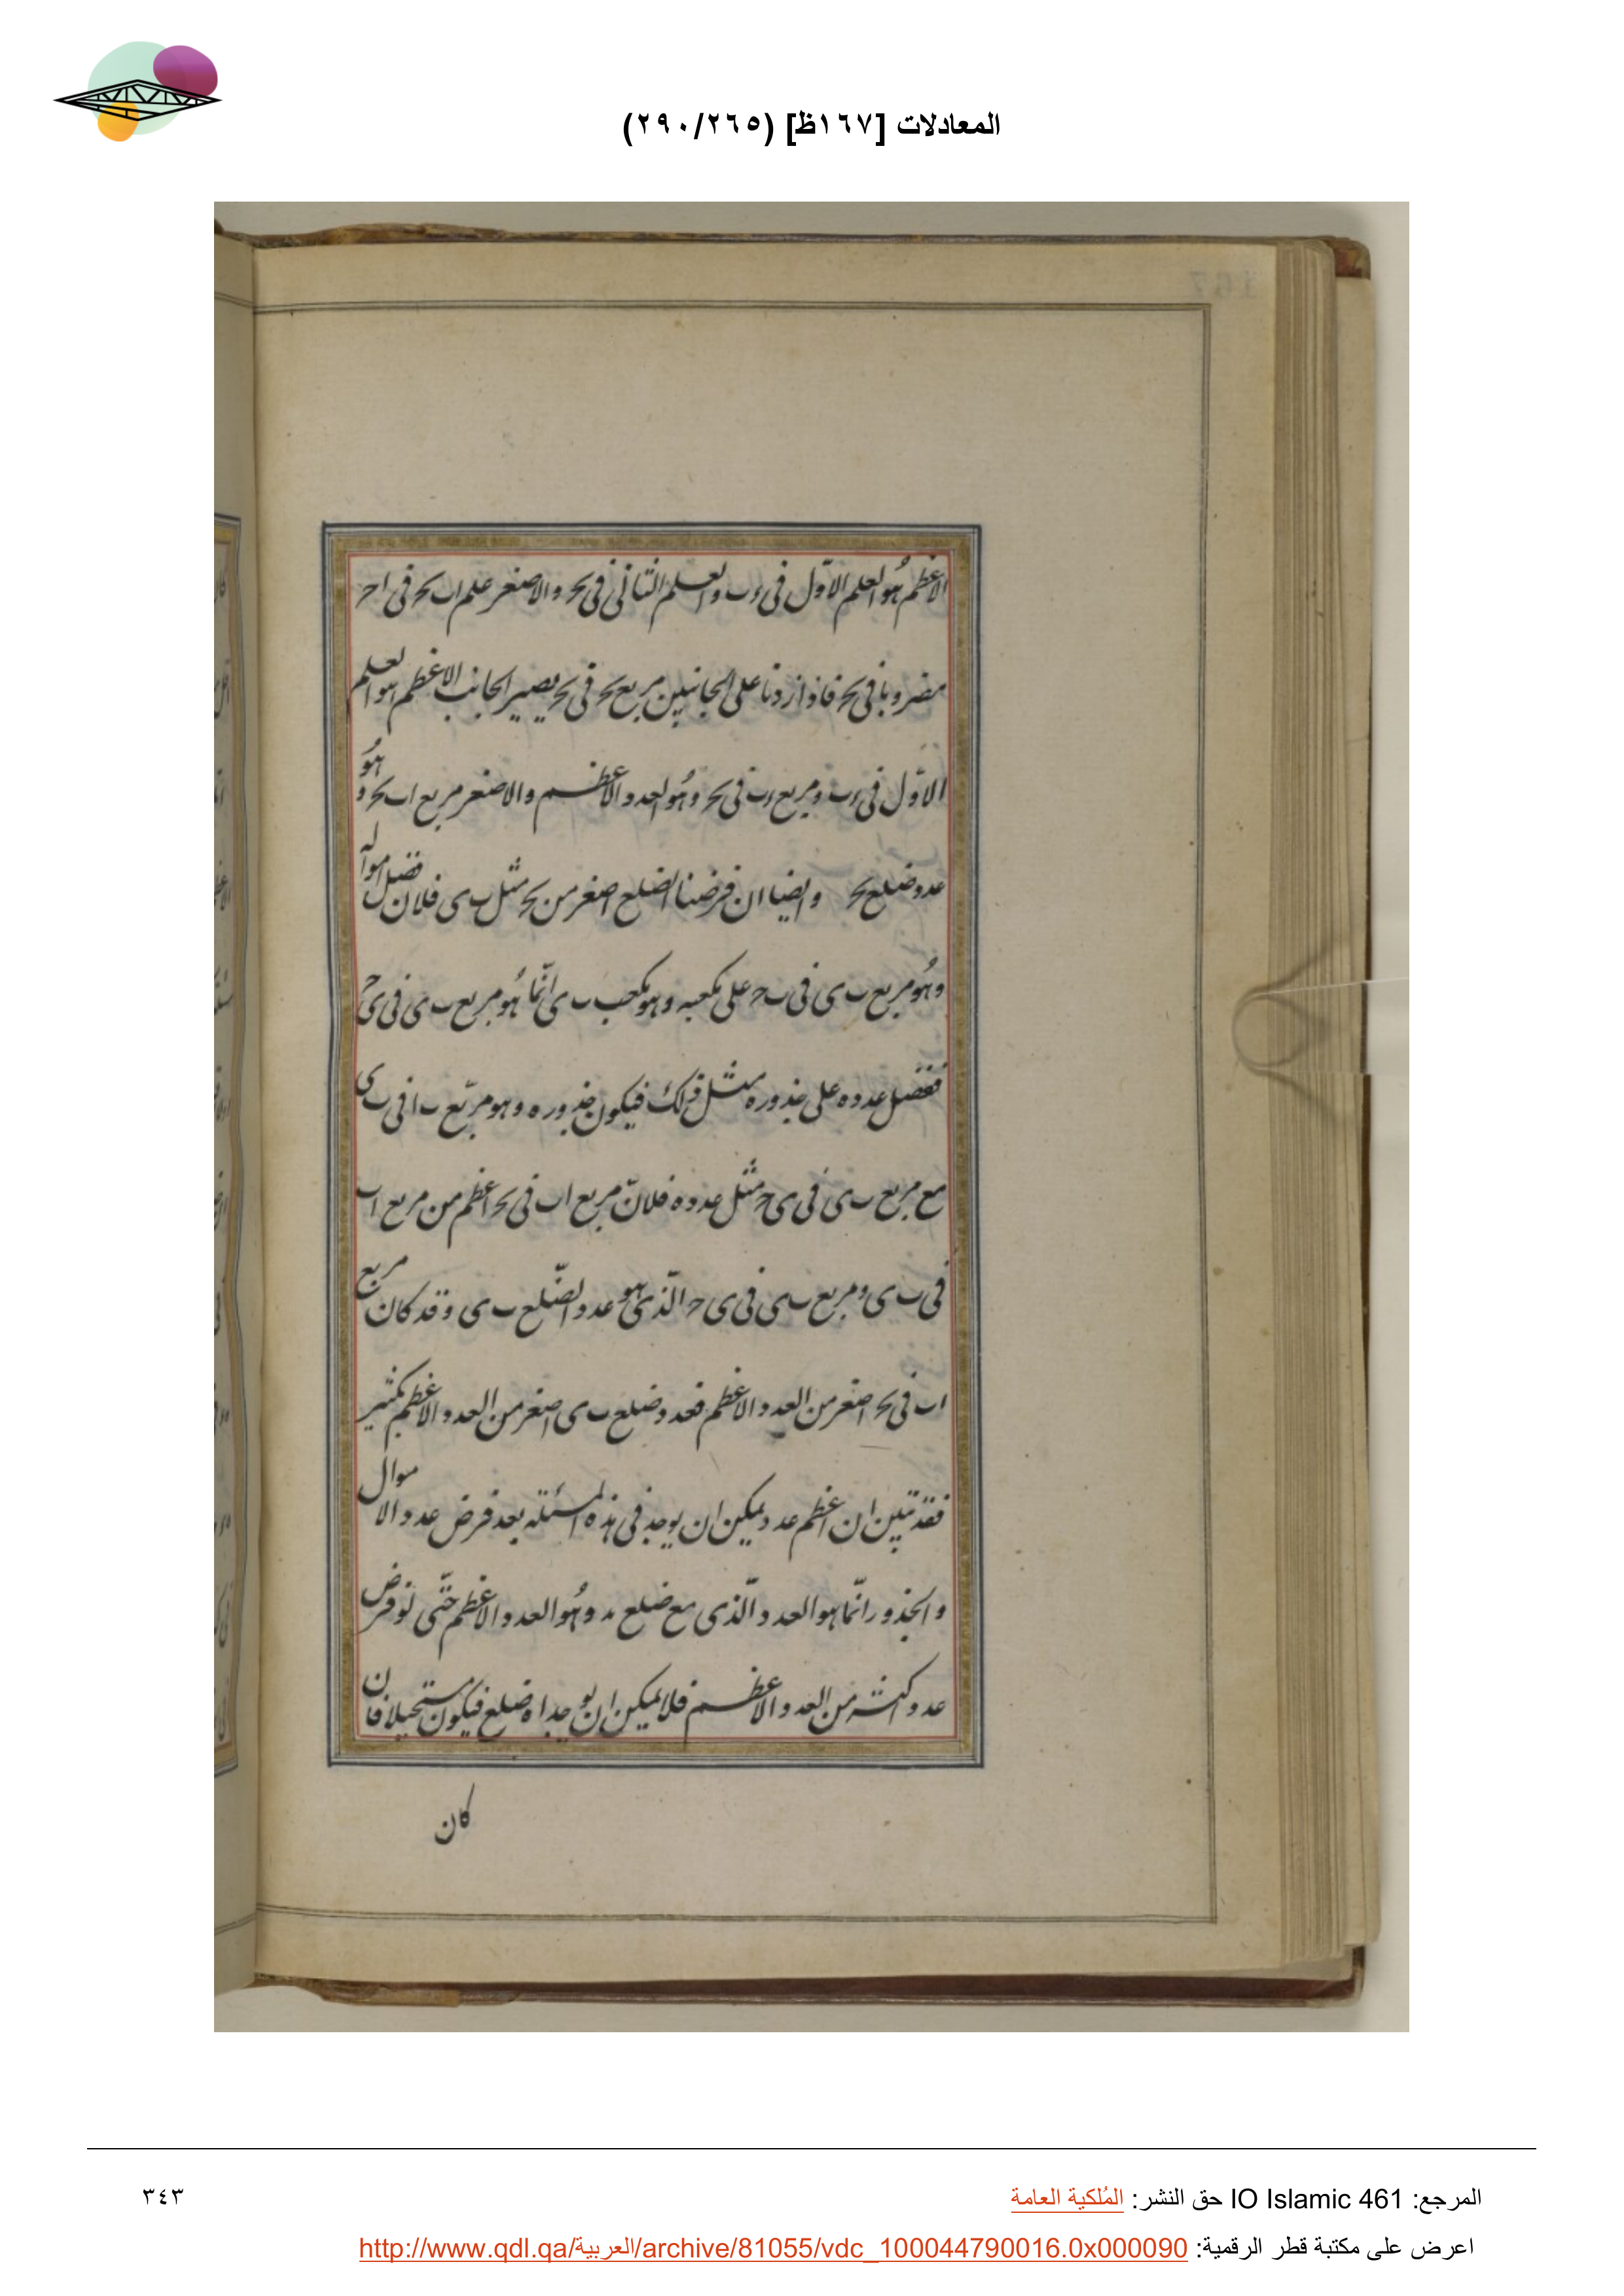 المعادلات [١٦٧ظ] (٢٩٠/٢٦٥)
الاعظم هو العلم الاول فى ءب والعلم الثانى فى ىح والاصغر علم اب ىح فى اح
مضروبا فى ىح فاذا زدنا على الجانبين مربع ىح فى ىح يصير الجانب الاعظم هو العلم
الاوّل فى ءب ومربع ءب فى ىح وهو العدد الاعظم والاصغر مربع اب ىح وهو
عدد ضلع ىح وايضا ان فرضنا الضلع اصغر من ىح مثل ب ى فلان فضل امواله
وهو مربع ب ى فى ب ح على مكعبه وهو مكعب ب ى انّما هو مربع ب ى فى ى ح
ففضل عدده على جذوره مثل ذلك فيكون جذوره وهو مربّع ب ا فى ب ى
مع مربع ب ى فى ى ح مثل عدده فلانّ مربع اب فى ىح اعظم من مربع اب
فى ب ى ومربع ب ى فى ى ح الّذى هو عدد الضّلع ب ى وقد كان مربع
اب فى ىح اصغر من العدد الاعظم فعدد ضلع ب ى اصغر من العدد الاعظم بكثير
فقد تبين ان اعظم عدد يمكن ان يوجد فى هذه المسئله بعد فرض عدد الاموال
والجذور انّما هو العدد الّذى مع ضلع ءب وهو العدد الاعظم حتّى لو فرض
عدد اكثر من العدد الاعظم فلا يمكن ان يوجد اه ضلع فيكون مستحيلا فان
كان
المرجع: IO Islamic 461 حق النشر: المُلكية العامة
٣٤٣
اعرض على مكتبة قطر الرقمية: http://www.qdl.qa/العربية/archive/81055/vdc_100044790016.0x000090